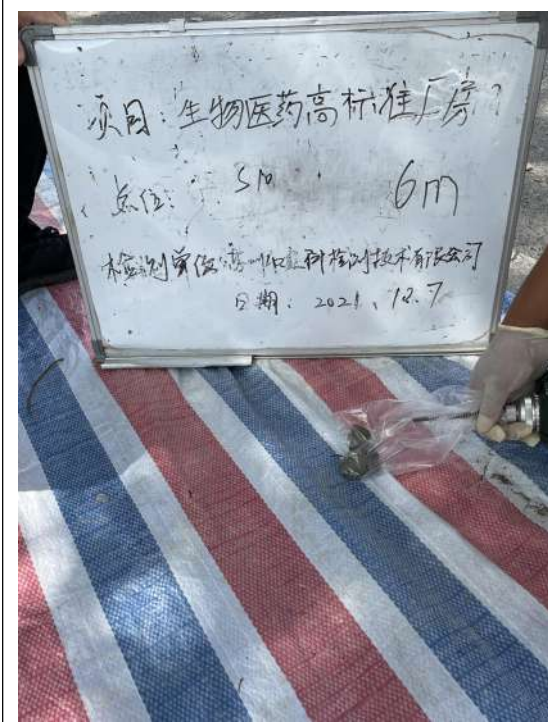 项目:生物医药高标准厂房
点位: S10 6m
检测单位: 检测技术有限公司
日期: 2021.12.7